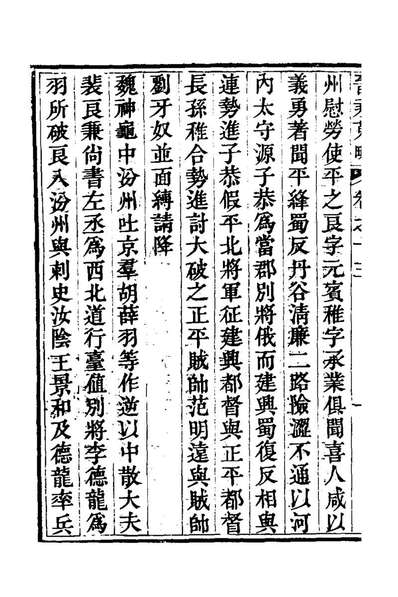 晉乘蒐略 卷之十三
州慰勞使平之良字元賓稚字承業俱聞喜人咸以
義勇著聞平絳蜀反丹谷清廉二路險澀不通以河
內太守源子恭為當郡別將俄而建興蜀復反相與
連勢進子恭假平北將軍征建興都督與正平都督
長孫稚合勢進討大破之正平賊帥范明遠與賊帥
劉牙奴並面縛請降
魏神龜中汾州吐京羣胡薛羽等作逆以中散大夫
裴良兼尚書左丞為西北道行臺值別將李德龍為
羽所破良入汾州與刺史汝陰王景和及德龍率兵